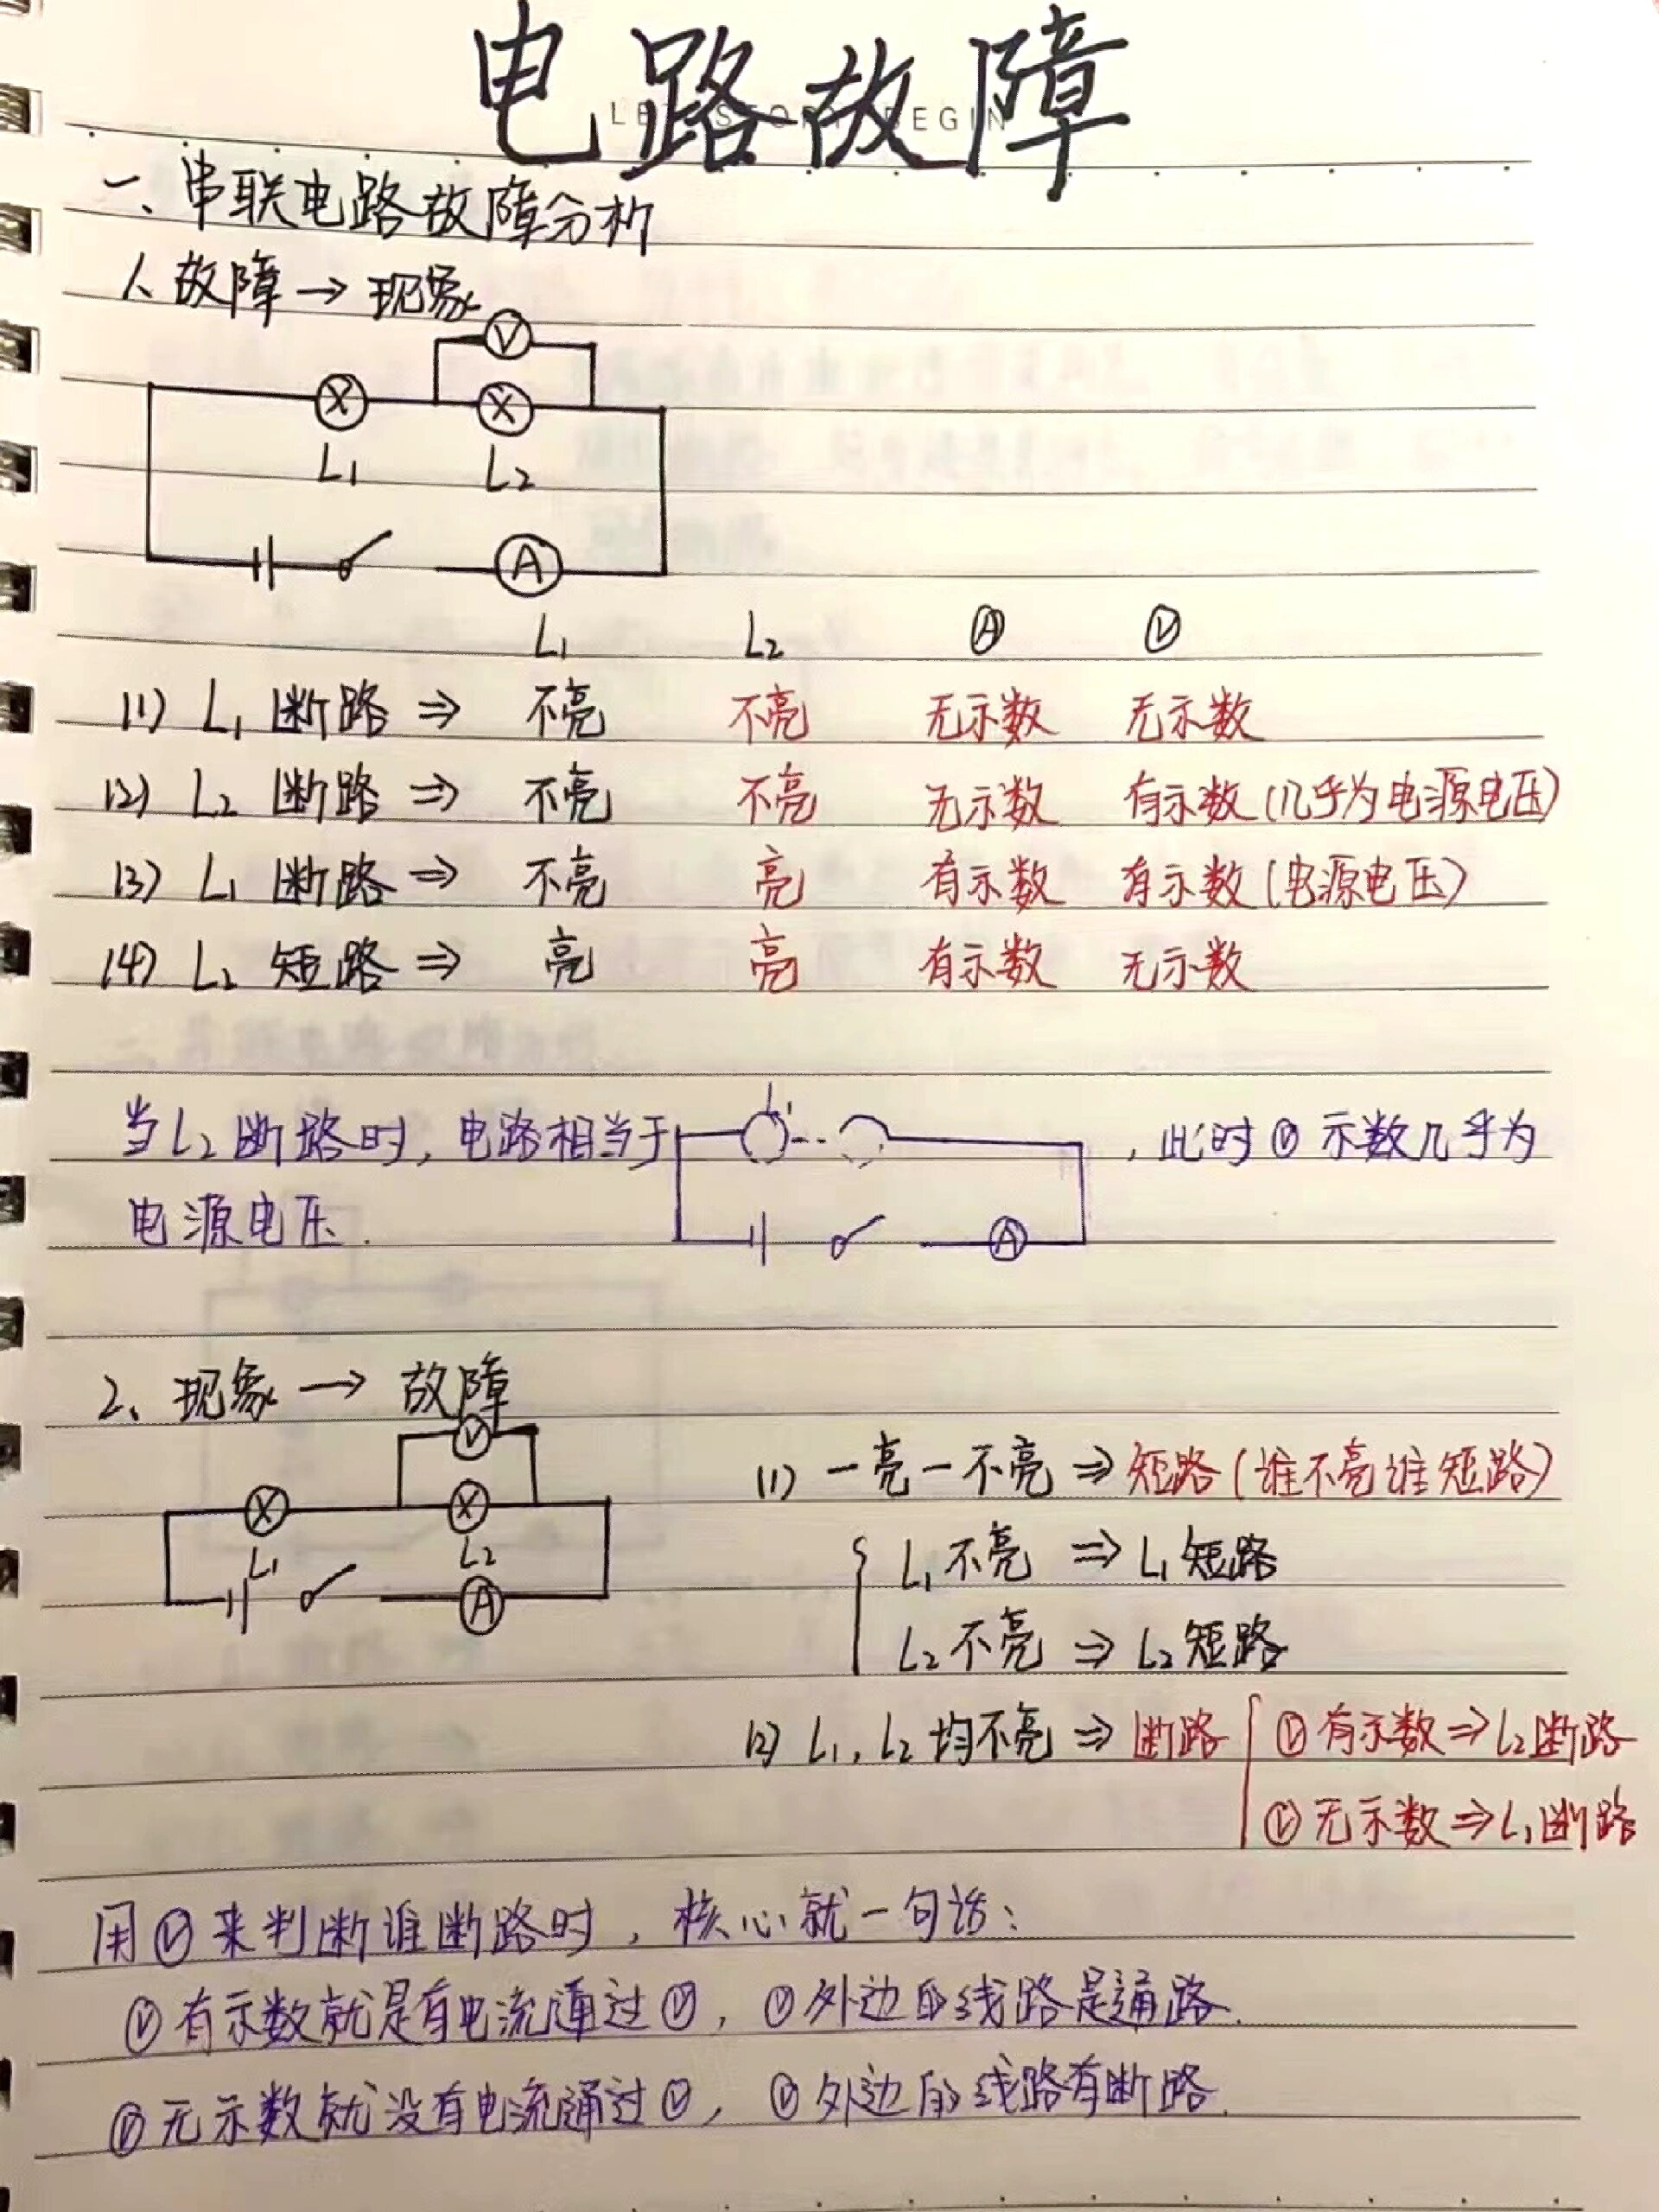 电路故障
一、串联电路故障分析
1、故障→现象
V
L₁ L₂
A
L₁ L₂ Ⓐ Ⓥ
(1) L₁ 断路 ⇒ 不亮 不亮 无示数 无示数
(2) L₂ 断路 ⇒ 不亮 不亮 无示数 有示数(几乎为电源电压)
(3) L₁ 断路 ⇒ 不亮 亮 有示数 有示数(电源电压)
(4) L₂ 短路 ⇒ 亮 亮 有示数 无示数
当L₂断路时，电路相当于 L₁ ，此时Ⓥ示数几乎为
A
电源电压.
2、现象→故障
V
L₁ L₂
A
(1) 一亮一不亮 ⇒ 短路(谁不亮谁短路)
L₁不亮 ⇒ L₁短路
L₂不亮 ⇒ L₂短路
(2) L₁，L₂均不亮 ⇒ 断路 Ⓥ有示数⇒L₂断路
Ⓥ无示数⇒L₁断路
用Ⓥ来判断谁断路时，核心就一句话：
Ⓥ有示数就是有电流通过Ⓥ，Ⓥ外边的线路是通路.
Ⓥ无示数就没有电流通过Ⓥ，Ⓥ外边的线路有断路.